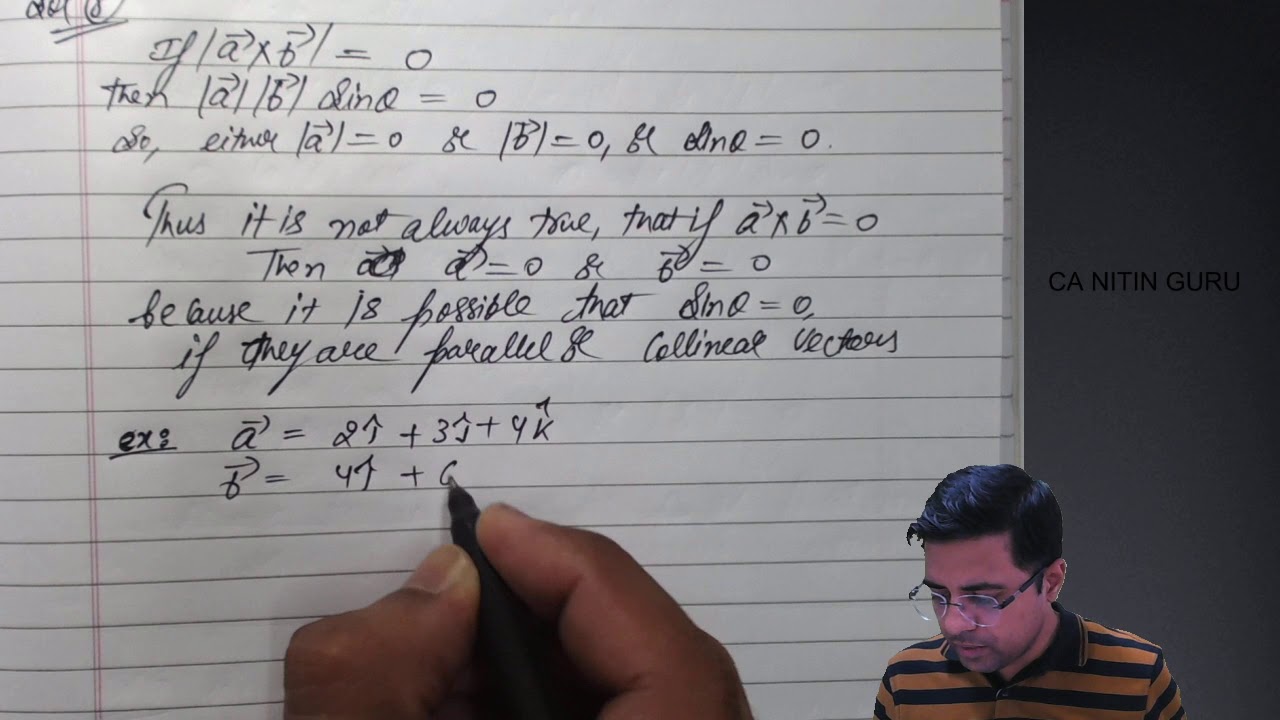 If |a⃗ × b⃗| = 0
then |a⃗| |b⃗| sinθ = 0
So, either |a⃗| = 0 or |b⃗| = 0, or sinθ = 0.
Thus it is not always true, that if a⃗ × b⃗ = 0
Then a⃗ = 0 or b⃗ = 0
because it is possible that sinθ = 0,
if they are parallel or Collinear vectors
CA NITIN GURU
ex: a⃗ = 2î + 3ĵ + 4k̂
b⃗ = 4î + 6